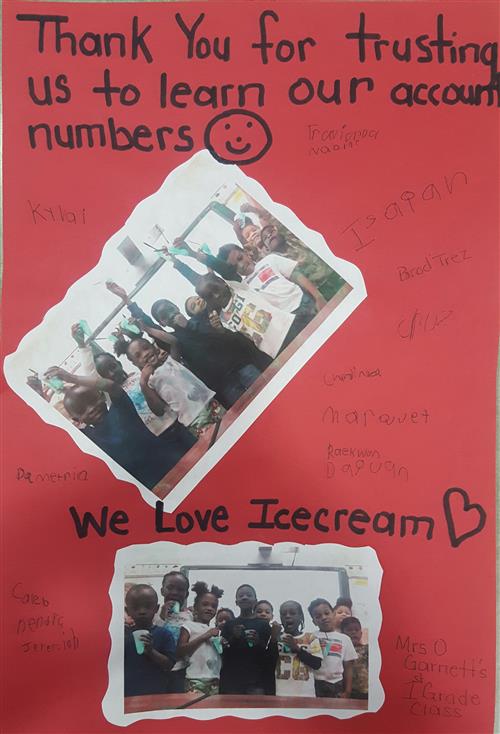 Thank You for trusting
us to learn our account
numbers
Naomi
Kylai
Isaiah
BrodTrez
Marquet
Raekwon
Daquan
We Love Icecream
Caleb
Jeremiah
Mrs O
Garnett's
1st Grade
Class